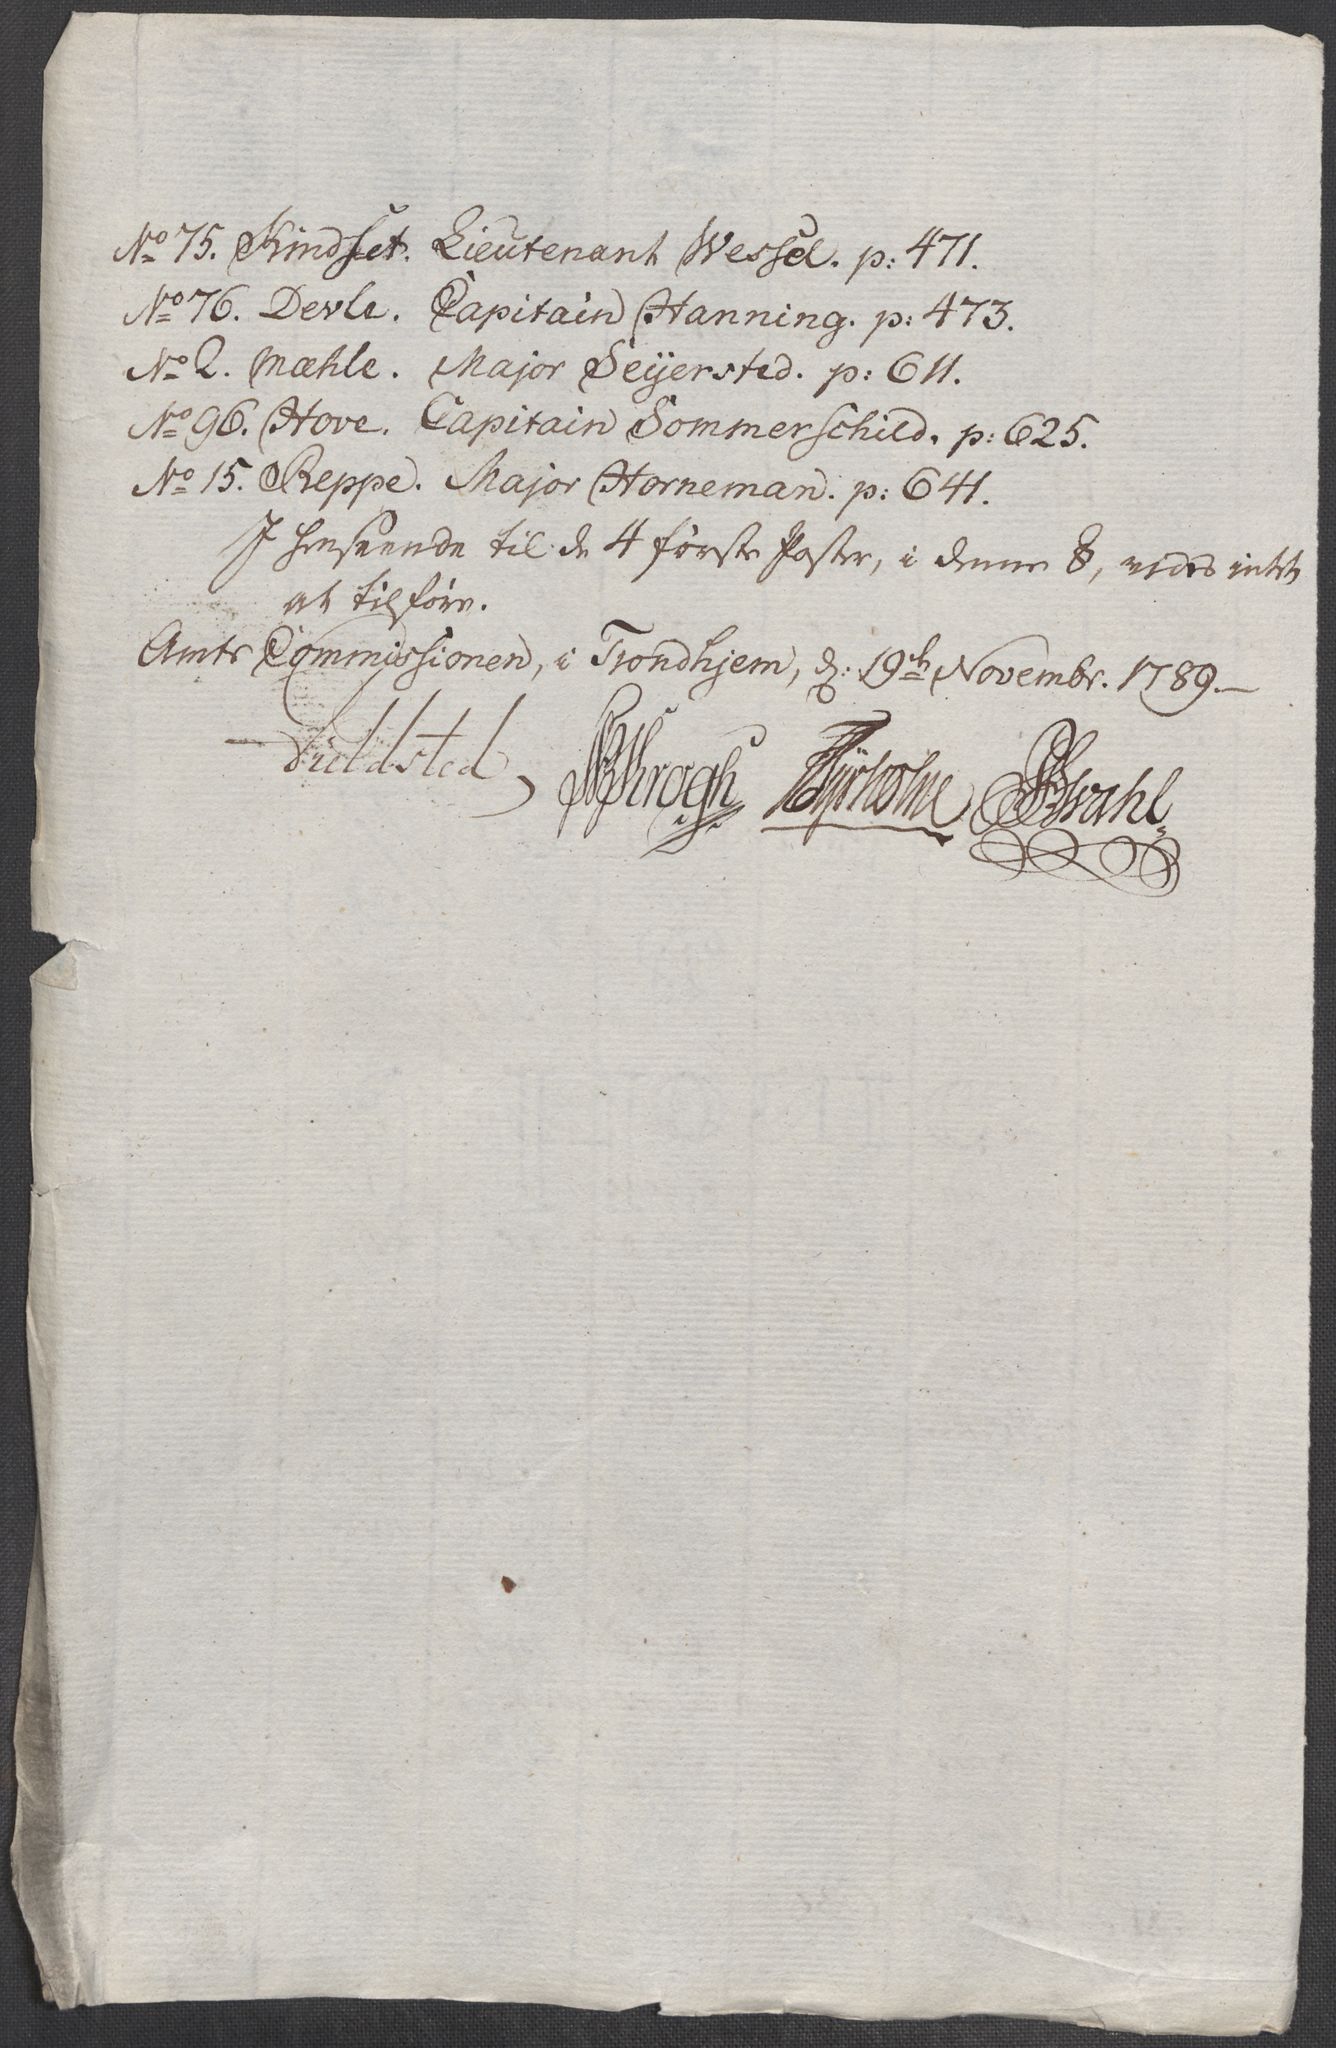 No 75. Kindset. Lieutenant Wessel. p: 471.
No 76. Devle. Capitain Hanning. p: 473.
No 2. Mæhle. Major Seÿersted. p: 611.
No 96. Hove. Capitain Sommerschild. p: 625.
No 15. Reppe. Major Horneman. p: 641.
I Henseende til de 4 første Poster, i denne §, vides intet
at tilføre.
Amts Commissionen, i Trondhjem, d: 19de Novembr. 1789.
Krogh